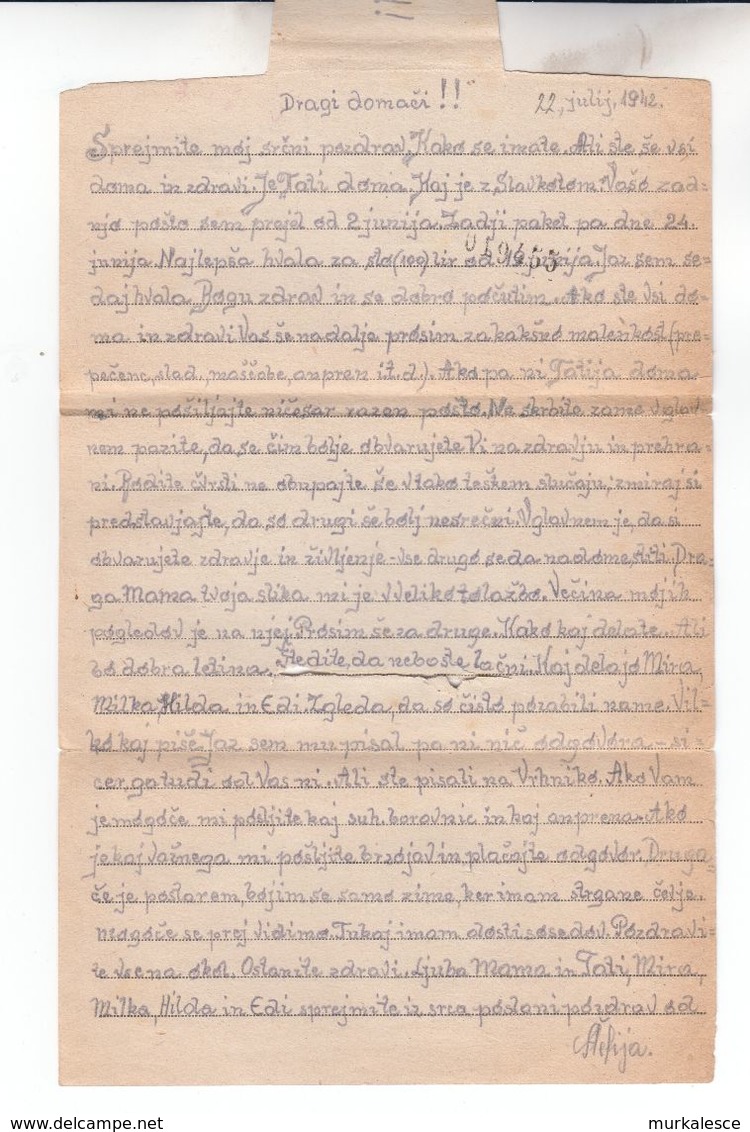 Dragi domači!!
22, julij, 1942.
Sprejmite moj srčni pozdrav. Kako se imate. Ali ste še vsi
doma in zdravi. Je Tati doma. Kaj je z Slavkotom. Vašo zad=
njo pošto sem prejel od 2 junija. Zadji paket pa dne 24.
junija. Najlepša hvala za sto (100) lir od junija. Jaz sem se=
daj hvala Bogu zdrav in se dobro počutim. Ako ste vsi do=
ma in zdravi Vas še nadalje prosim za kakšno malenkost (pre=
pečenc, slad, maščobe, anpren i.t.d.). Ako pa ni Tatija doma
mi ne pošiljajte ničesar razen pošto. Ne skrbite zame v glav
nem pazite, da se čim bolje obvarujete Vi na zdravju in prehra=
ni. Bodite čvrsti ne obupajte še v tako teškem slučaju; zmiraj si
predstavjajte, da so drugi še bolj nesrečni. V glavnem je, da si
obvarujete zdravje in življenje - vse drugo se da nadomestiti. Dra=
ga Mama tvoja slika mi je v veliko tolažbo. Večina mojih
pogledov je na njej. Prosim še za druge. Kako kaj delate. Ali
bo dobra letina. Štedite, da ne boste lačni. Kaj delajo Mira,
Milka, Hilda in Edi. Zgleda, da so čisto pozabili name. Vil=
ko kaj piše. Jaz sem mu pisal pa ni nič odgovora - si=
cer ga tudi od Vas ni. Ali ste pisali na Vrhniko. Ako Vam
je mogoče mi pošljite kaj suh. borovnic in kaj anprena. Ako
je kaj važnega mi pošljite brzojav in plačajte odgovor. Druga=
če je po starem, bojim se samo zime, ker imam strgane čevlje.
Mogoče se prej vidimo. Tukaj imam dosti sosedov. Pozdravi=
te vse na okol. Ostanite zdravi. Ljuba Mama in Tati, Mira,
Milka, Hilda in Edi sprejmite iz srca poslani pozdrav od
murkalesce